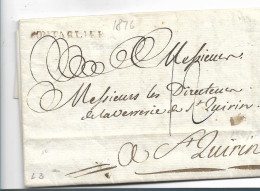 1876
PONTARLIER
Messieurs
Messieurs les Directeurs
de la verrerie de St Quirin
a St Quirin